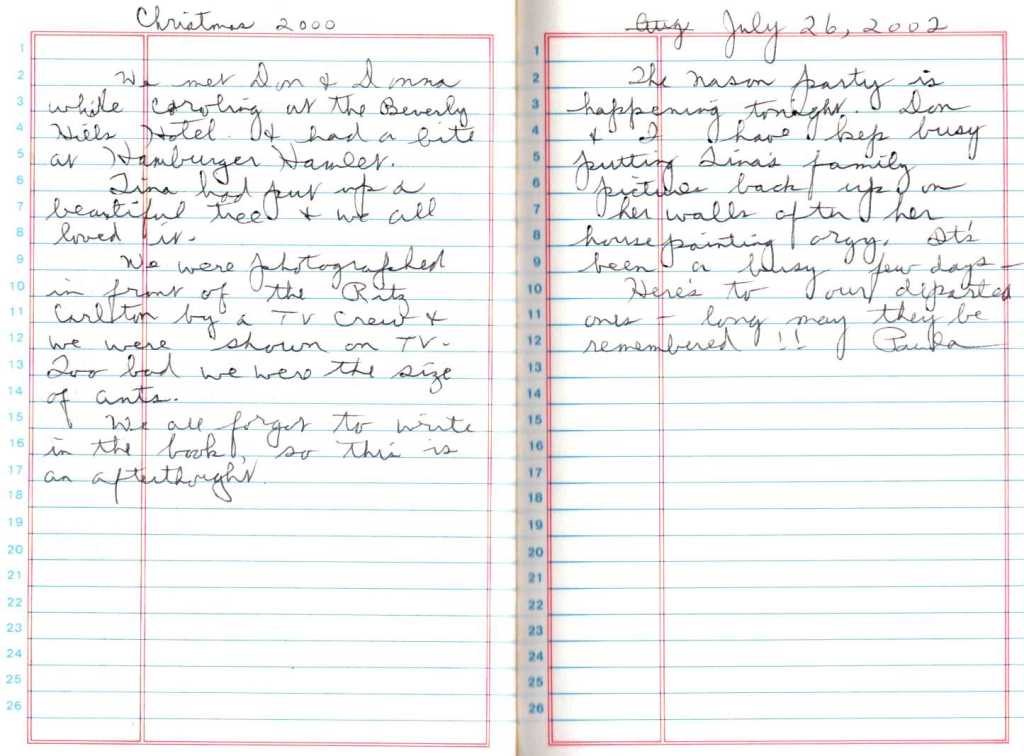 Christmas 2000
We met Don & Donna
while caroling at the Beverly
Hills Hotel. & had a bite
at Hamburger Hamlet.
Tina had put up a
beautiful tree & we all
loved it.
We were photographed
in front of the Ritz
Carlton by a TV crew &
we were shown on TV.
Too bad we were the size
of ants.
We all forgot to write
in the book, so this is
an afterthought.
1
2
3
4
5
6
7
8
9
10
11
12
13
14
15
16
17
18
19
20
21
22
23
24
25
26
Aug July 26, 2002
The Nason party is
happening tonight. Don
& I have kep busy
putting Tina's family
pictures back up on
her walls after her
house painting orgy. It's
been a busy few days –
Here's to our departed
ones – long may they be
remembered !! Paula
1
2
3
4
5
6
7
8
9
10
11
12
13
14
15
16
17
18
19
20
21
22
23
24
25
26